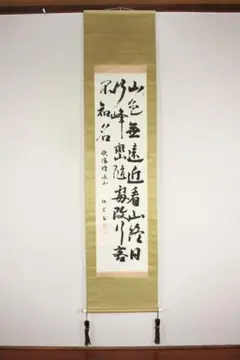 山色無遠近看山終日
行峰巒隨處改行客
不知名
歐陽脩遠山